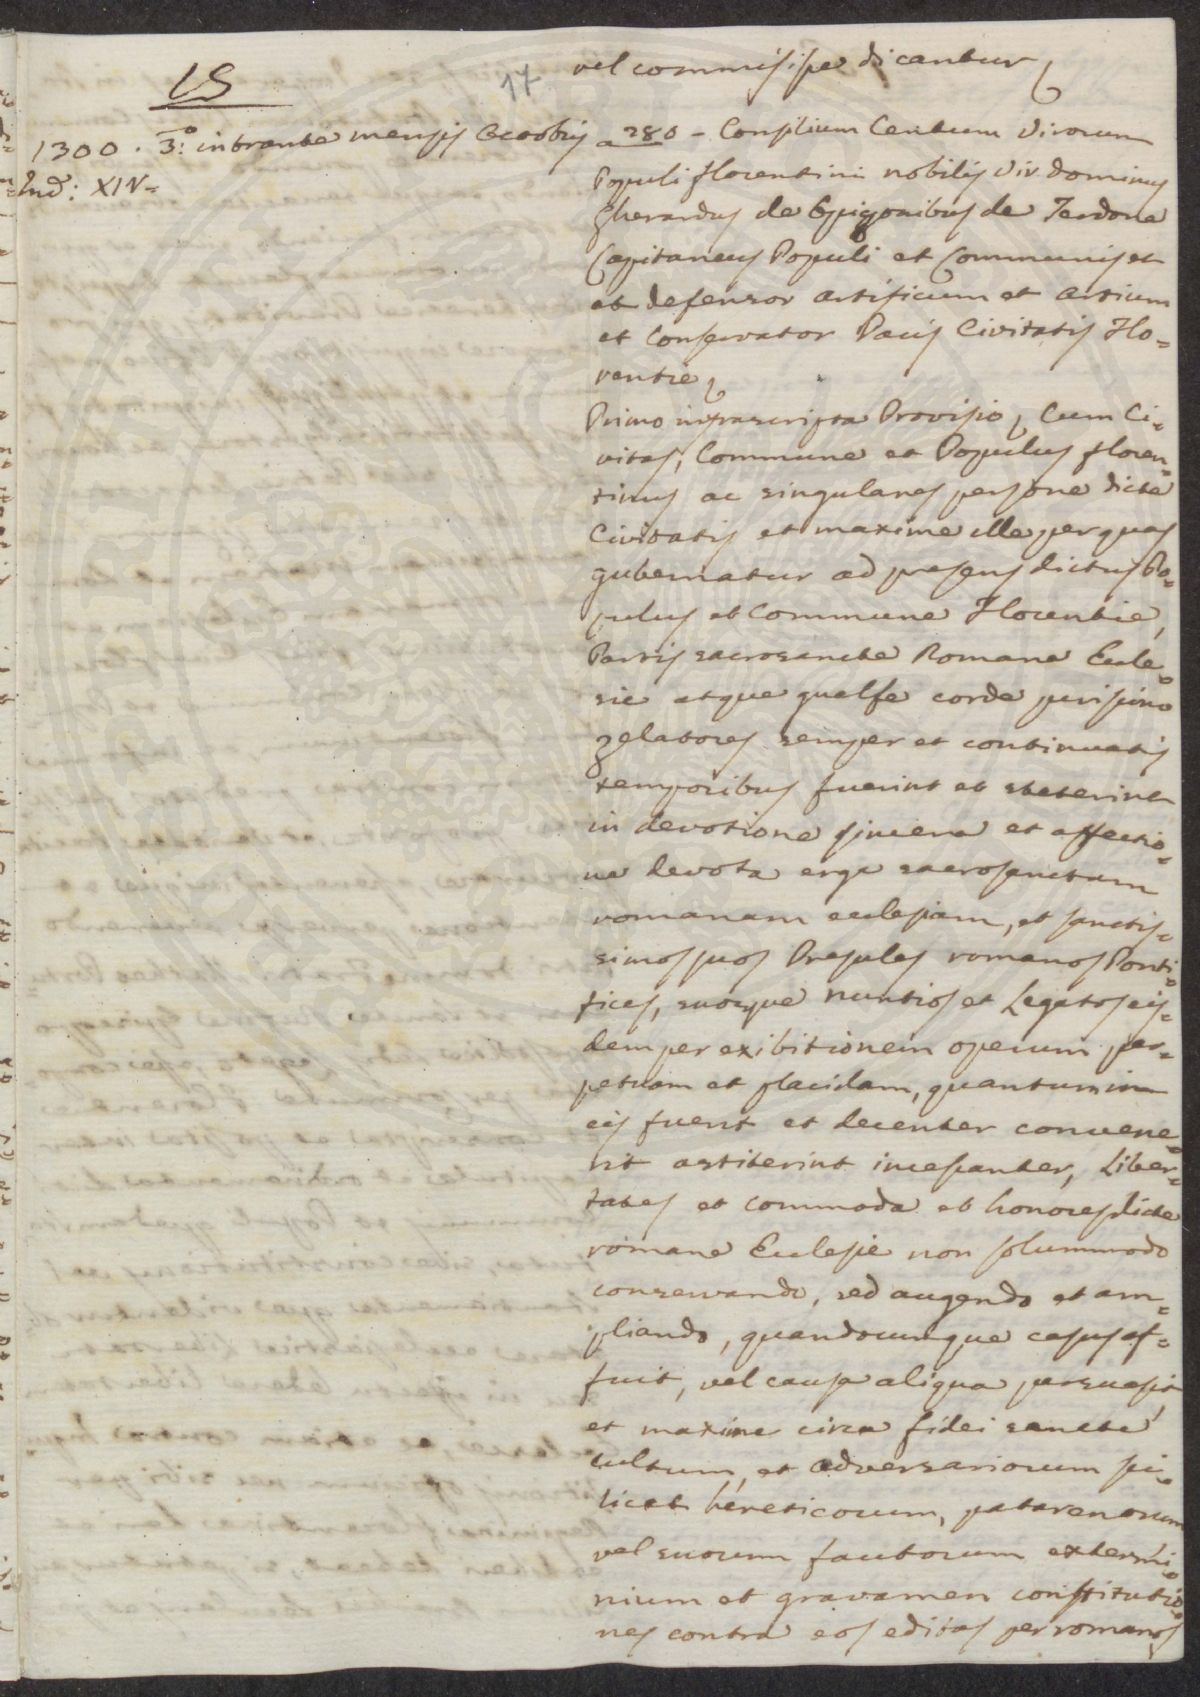 15
17
vel commisisse dicantur
1300. 3.º intrante mensis Octobris
Ind: XIV=
a 280 - Consilium Centum Virorum
Populi florentini nobilis Vir dominus
Gherardus de de Terdona
Capitaneus Populi et Communis et
et defensor artificum et artium
et Conservator Pacis Civitatis Flo=
rentie
Primo infrascripta Provisio, Cum Ci=
vitas, Commune et Populus floren=
tinus ac singulares persone dicte
Civitatis et maxime ille per quas
gubernatur ad presens dictus Po=
pulus et Commune Florentie,
Partis sacrosancte Romane Eccle=
sie atque guelfe corde purissimo
zelatores semper et continuatis
temporibus fuerint et steterint
in devotione sincera et affectio=
ne devota erga sacrosanctam
romanam ecclesiam, et sanctis=
simos suos Presules romanos Ponti=
fices, suosque nuntios et Legatos eis=
dem per exibitionem operum per=
petuam et placidam, quantum in
eis fuerit et decenter convene=
rit astiterint incessanter, Liber=
tates et commoda et honores dicte
romane Ecclesie non solummodo
conservando, sed augendo et am=
pliando, quandocumque casus af=
fuit, vel causa aliqua persuasit,
et maxime circa fidei sancte
cultum, et adversariorum sci=
licet héreticorum, patarenorum
vel suorum fautorum extermi=
nium et gravamen constitutio=
nes contra eos editas per romanos